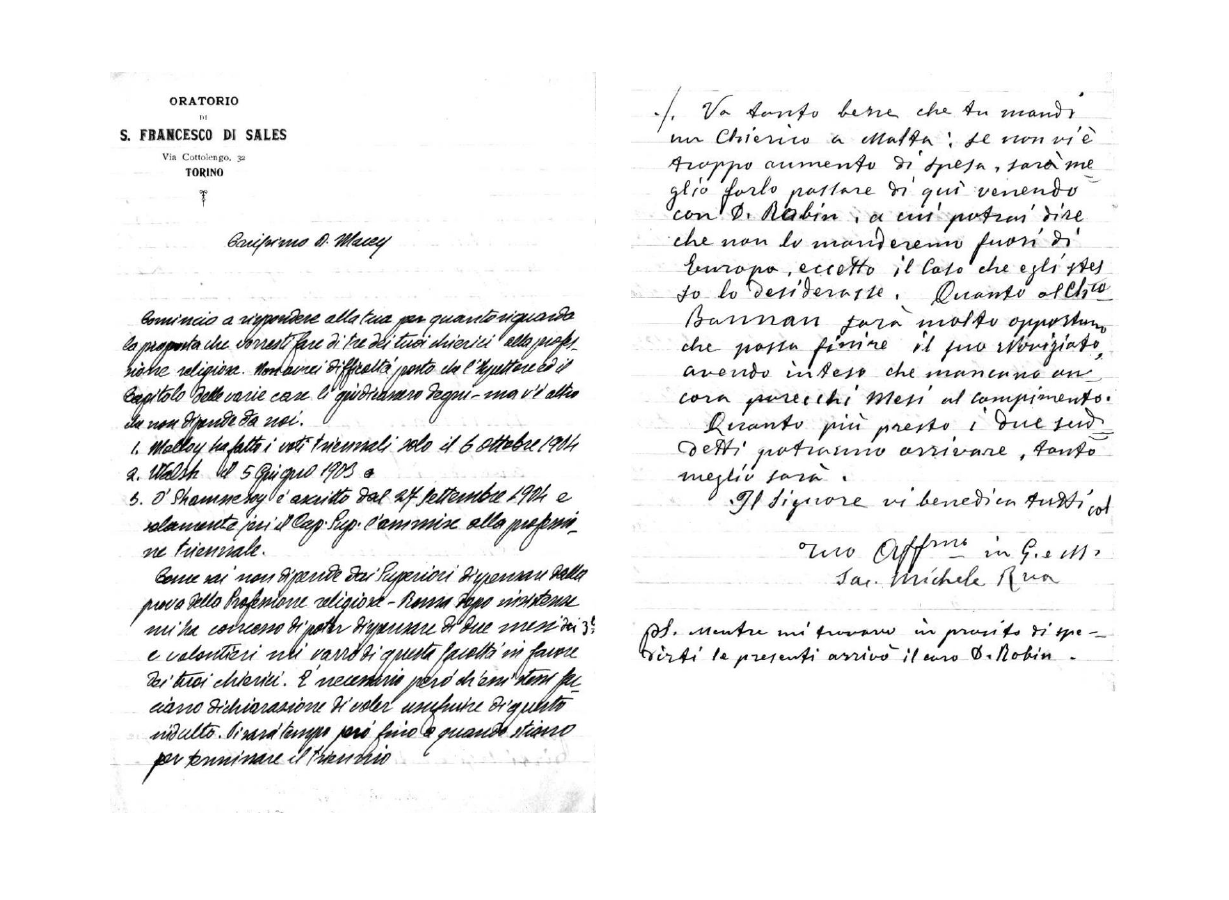 ORATORIO
DI
S. FRANCESCO DI SALES
Via Cottolengo, 32
TORINO
Carissimo D. Macey
Comincio a rispondere alla tua per quanto riguarda
la proposta che vorresti fare di tre dei tuoi chierici alla profes-
sione religiosa. Non avrei difficoltà posto che l'Ispettore ed il
Capitolo delle varie case li giudicassero degni - ma v'è altro
che non dipende da noi.
1. Malloy ha fatti i voti triennali solo il 6 ottobre 1904
2. Walsh il 5 Giugno 1903 e
3. O' Shaunessy è ascritto dal 27 Settembre 1904 e
solamente poi il Cap. Sup. l'ammise alla professio-
ne triennale.
Come sai non dipende dai Superiori dispensare dalla
prova della Professione religiosa - Roma dopo insistenze
mi ha concesso di poter dispensare di due mesi dei 3
e volontieri mi varrò di questa facoltà in favore
dei tuoi chierici. È necessario però ch'essi stessi fac-
ciano dichiarazione di voler usufruire di questo
indulto. Vi sarà tempo però fino a quando stiano
per terminare il triennio
./. Va tanto bene che tu mandi
un Chierico a Malta; se non vi è
troppo aumento di spesa, sarà me-
glio farlo passare di qui venendo
con D. Rabin, a cui potrai dire
che non lo manderemo fuori di
Europa, eccetto il Caso che egli stes
so lo desiderasse. Quanto al Chco
Bannan sarà molto opportuno
che possa finire il suo Noviziato,
avendo inteso che mancano an-
cora parecchi Mesi al compimento.
Quanto più presto i due sud-
detti potranno arrivare, tanto
meglio sarà.
Il Signore vi benedica tutti col
tuo Affmo in G. e M.
Sac. Michele Rua
PS. Mentre mi trovavo in procito di spe-
dirti la presenti arrivò il caro D. Rabin.